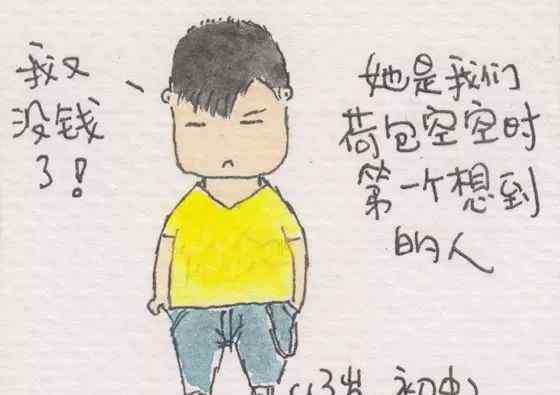 我又
没钱
了！
她是我们
荷包空空时
第一个想到
的人
(13岁 初中)